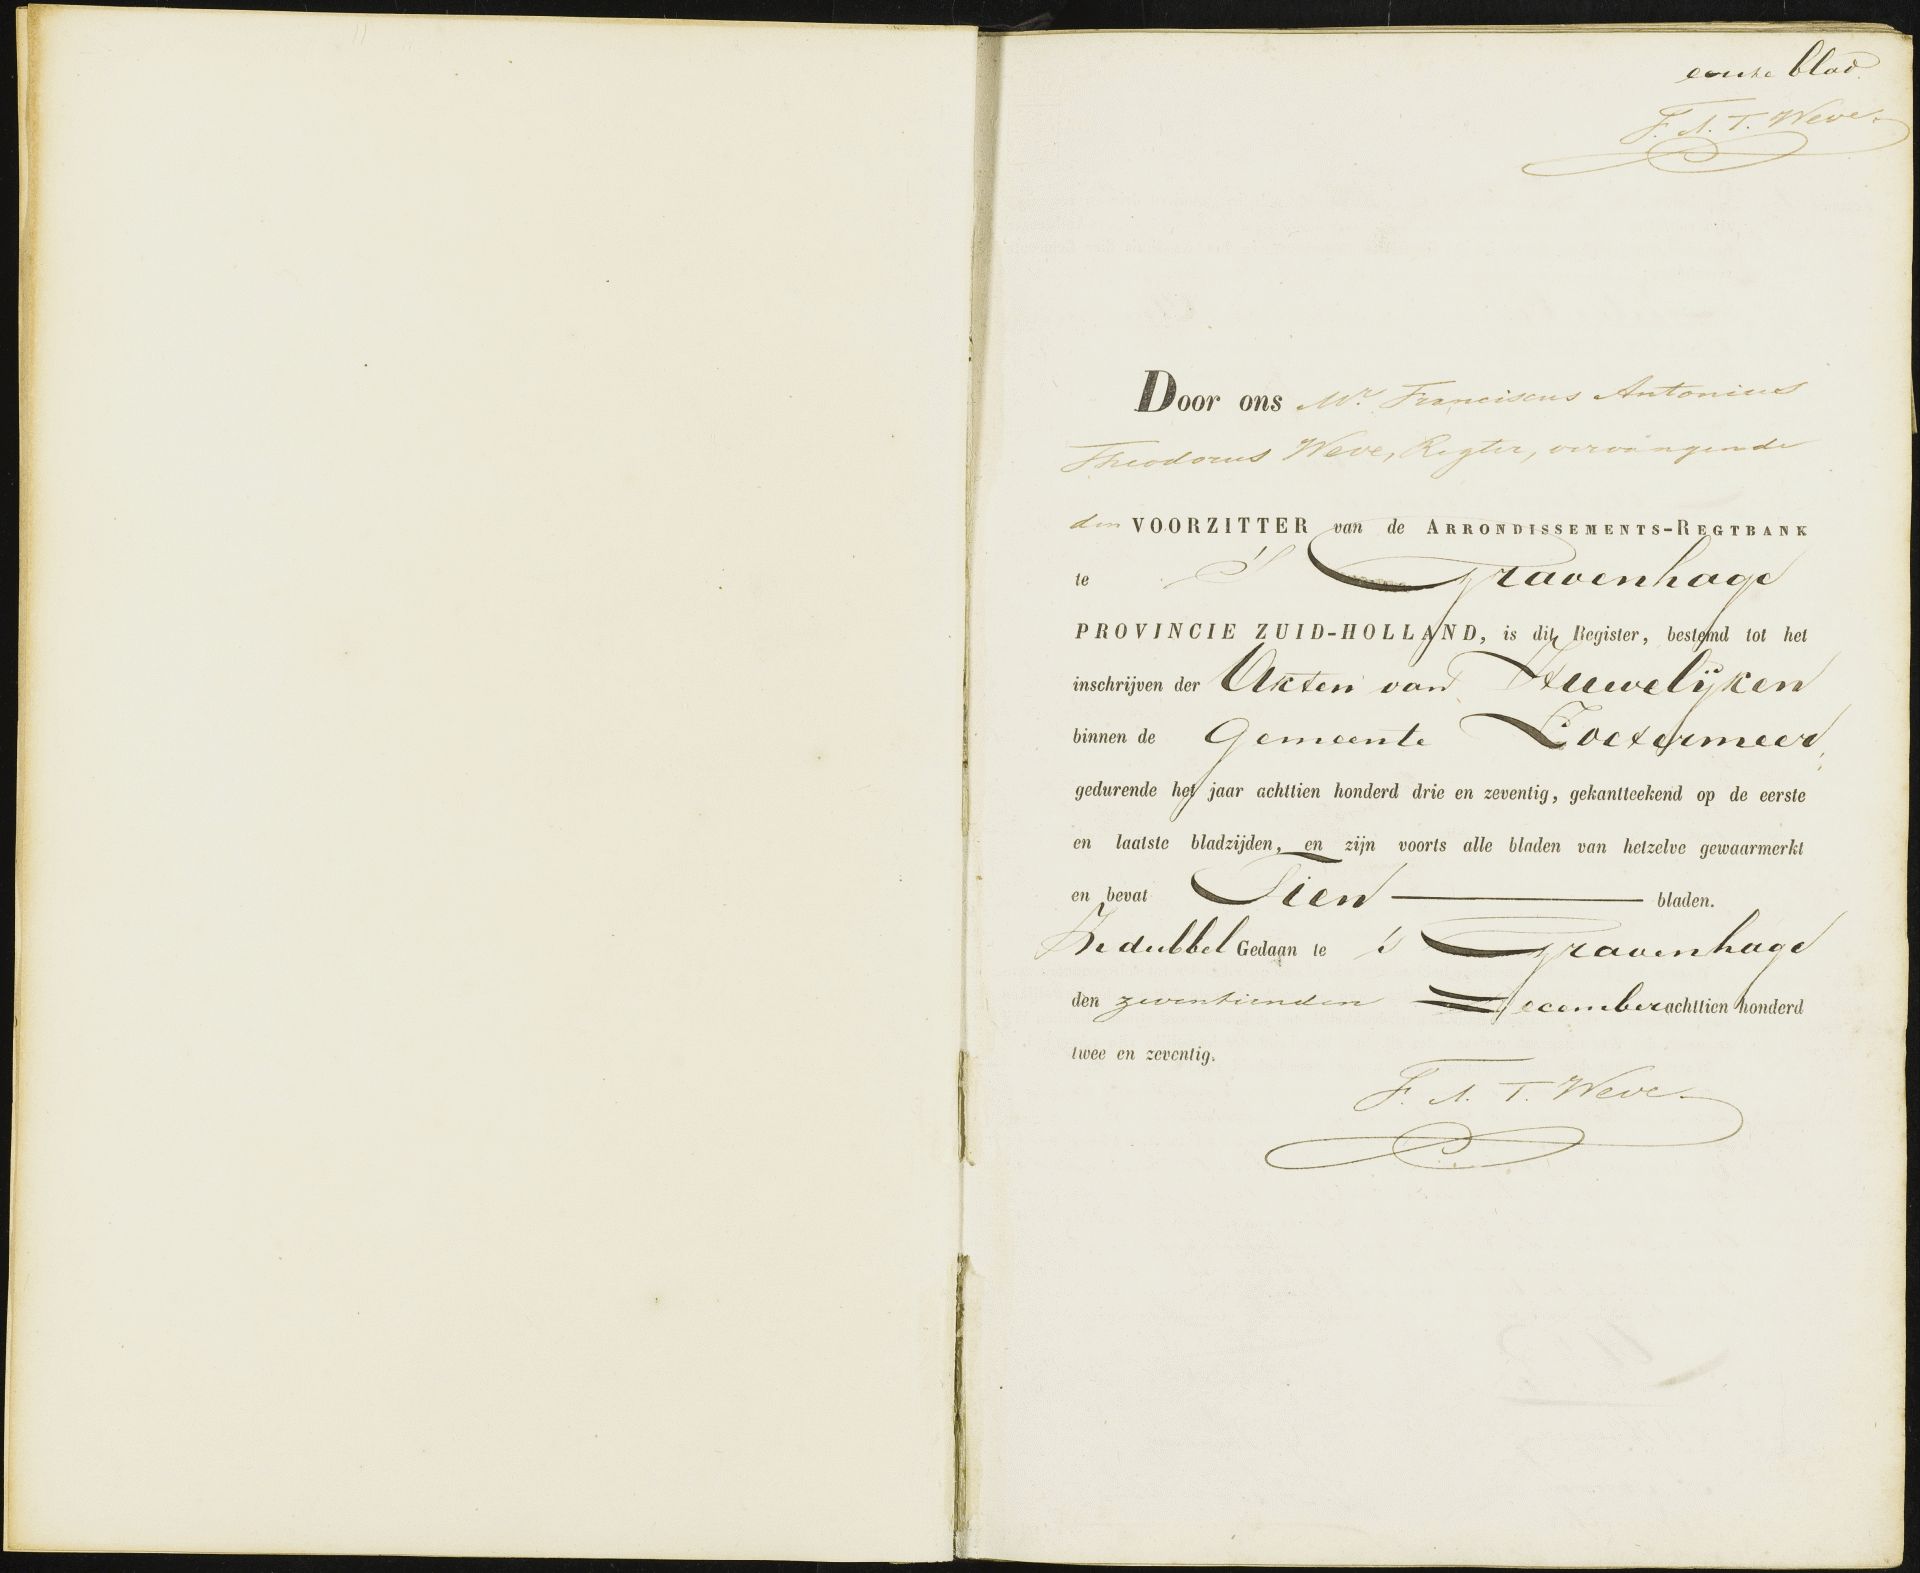 eerste blad.
F. A. T. Weve.
Door ons Mr. Franciscus Antonius
Theodorus Weve, Regter, vervangende
den VOORZITTER van de ARRONDISSEMENTS-REGTBANK
te 's Gravenhage
PROVINCIE ZUID-HOLLAND, is dit Register, bestemd tot het
inschrijven der Akten van Huwelijken
binnen de Gemeente Zoetermeer,
gedurende het jaar achttien honderd drie en zeventig, gekantteekend op de eerste
en laatste bladzijden, en zijn voorts alle bladen van hetzelve gewaarmerkt
en bevat Tien bladen.
In dubbel Gedaan te 's Gravenhage
den zeventienden December achttien honderd
twee en zeventig.
F. A. T. Weve.